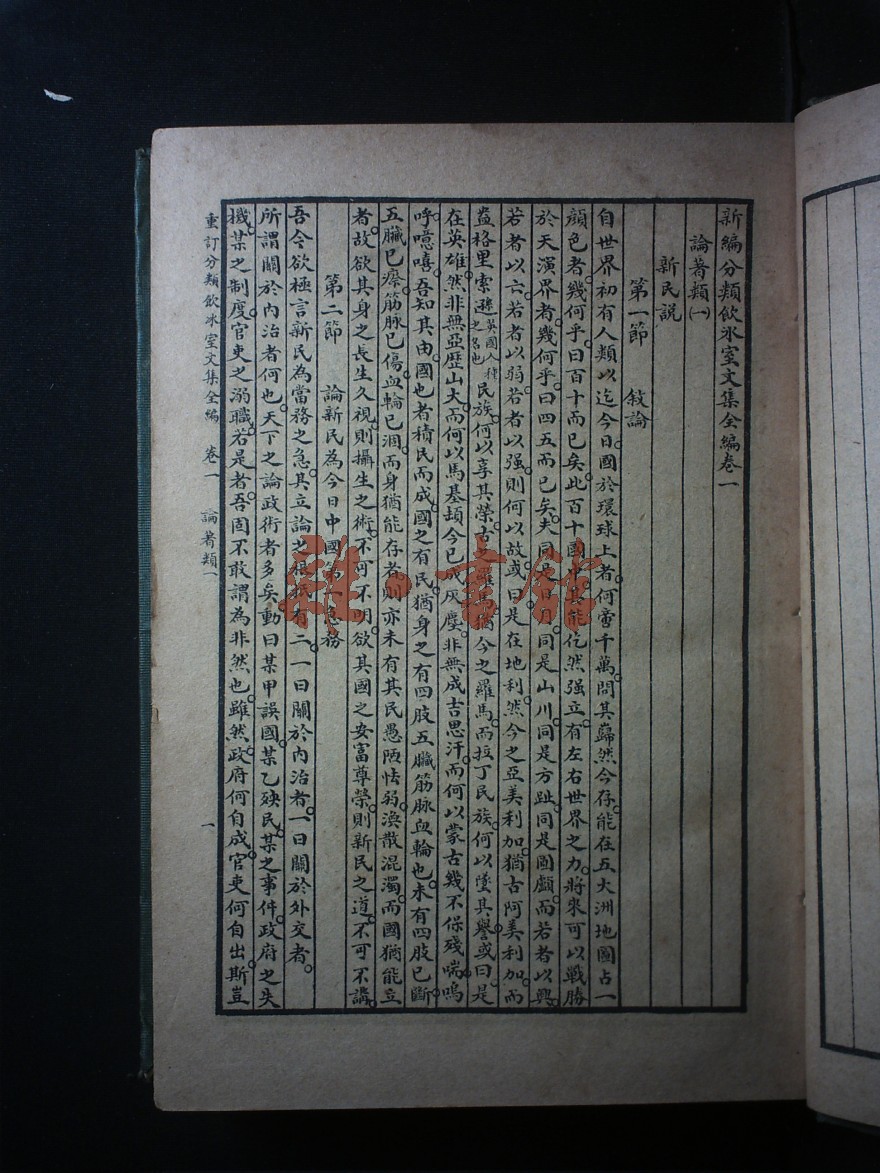 新編分類飲冰室文集全編卷一
論著類㈠
新民說
第一節　敘論
自世界初有人類以迄今日。國於環球上者。何啻千萬。問其巋然今存。能在五大洲地圖占一
顏色者。幾何乎。曰百十而已矣。此百十國。其能仡然强立。有左右世界之力。將來可以戰勝
於天演界者。幾何乎。曰四五而已矣。夫同是日月。同是山川。同是方趾。同是圓顱。而若者以興。
若者以亡。若者以弱。若者以强。則何以故。或曰。是在地利。然今之亞美利加。猶古阿美利加。而
盎格里索遜英國人種之名也民族。何以享其榮。古之羅馬。猶今之羅馬。而拉丁民族。何以墜其譽。或曰。是
在英雄。然非無亞歷山大。而何以馬基頓今已成灰塵。非無成吉思汗。而何以蒙古幾不保殘喘。嗚
呼噫嘻。吾知其由。國也者積民而成。國之有民。猶身之有四肢五臟筋脉血輪也。未有四肢已斷。
五臟已瘵。筋脉已傷。血輪已涸。而身猶能存者。則亦未有其民愚陋怯弱。渙散混濁。而國猶能立
者。故欲其身之長生久視。則攝生之術。不可不明。欲其國之安富尊榮。則新民之道。不可不講。
第二節　論新民為今日中國第一急務
吾今欲極言新民為當務之急。其立論之根柢有二。一曰關於內治者。一曰關於外交者。
所謂關於內治者何也。天下之論政術者多矣。動曰某甲誤國。某乙殃民。某之事件。政府之失
機。某之制度。官吏之溺職。若是者。吾固不敢謂為非然也。雖然。政府何自成。官吏何自出。斯豈
重訂分類飲冰室文集全編　卷一　論著類一　一
雜·書館